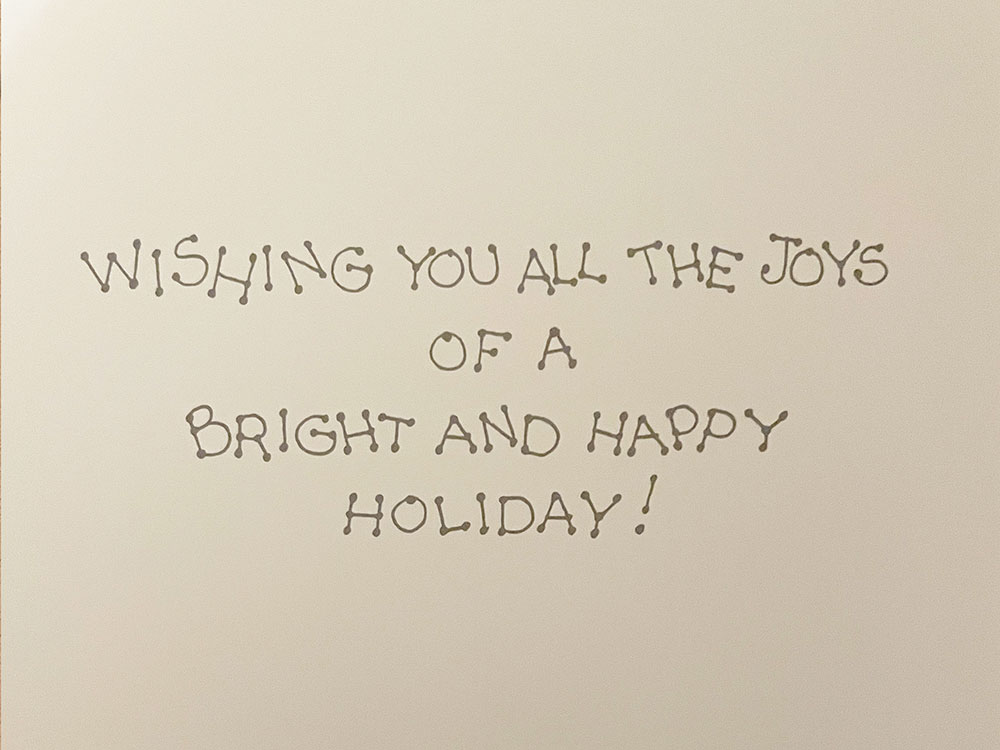 WISHING YOU ALL THE JOYS
OF A
BRIGHT AND HAPPY
HOLIDAY!